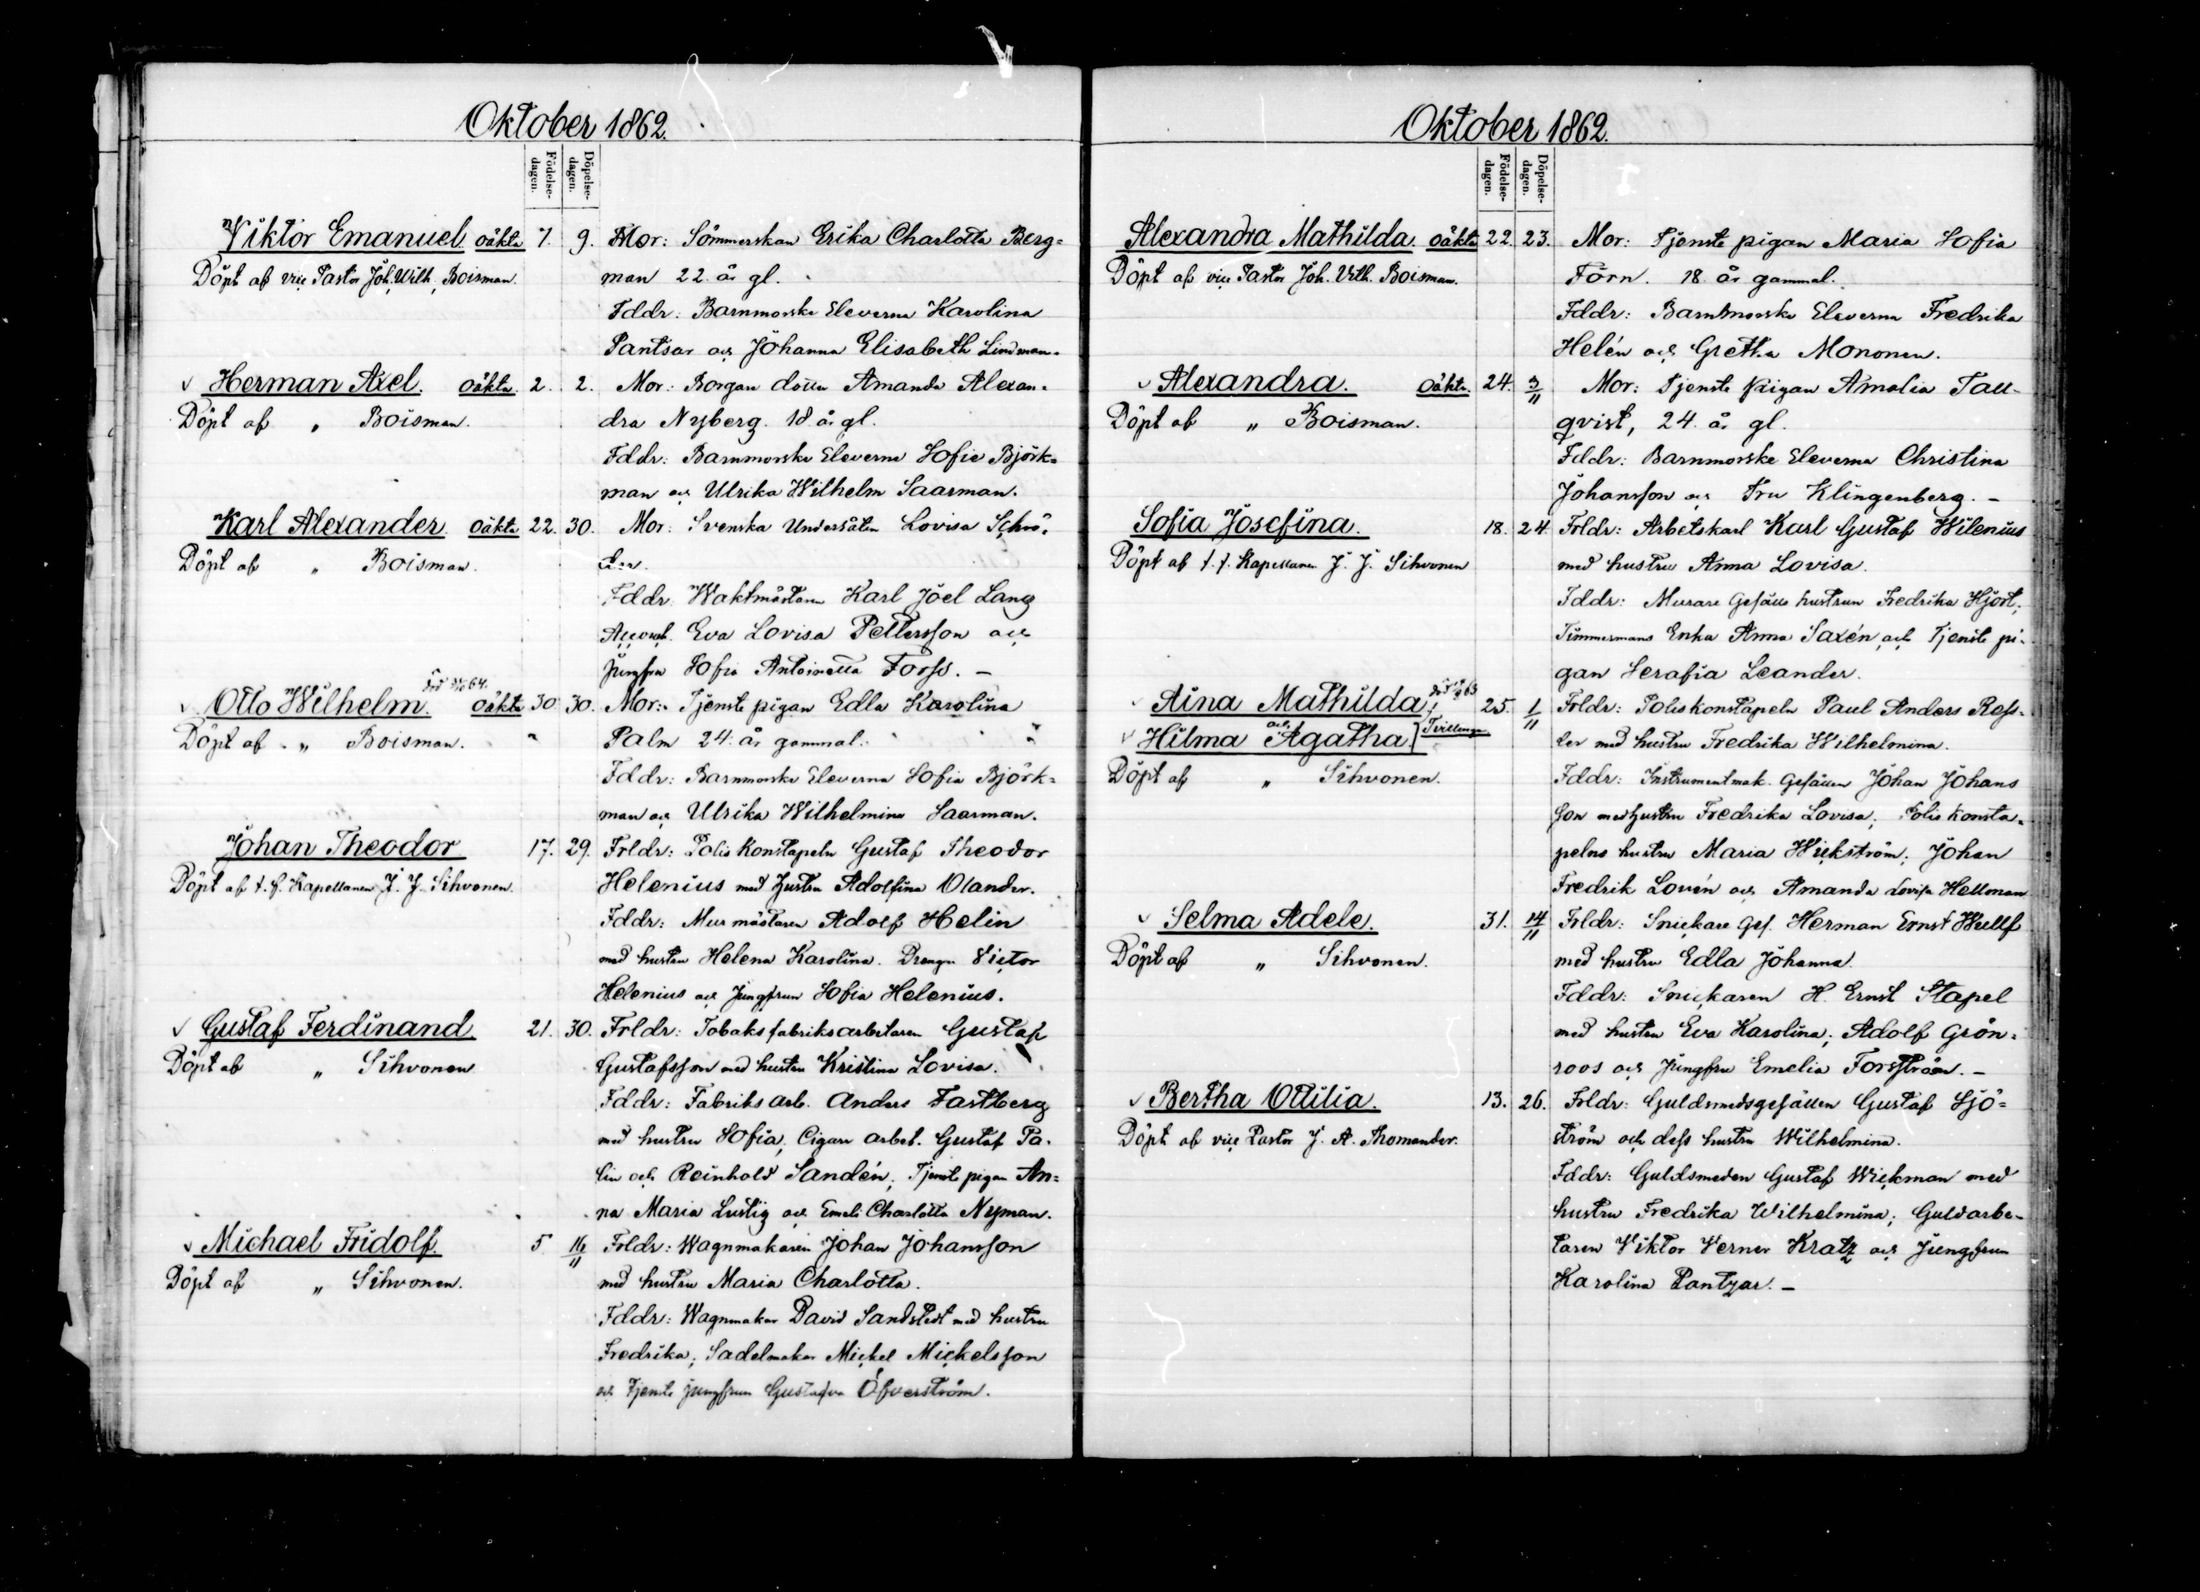 Oktober 1862.
Födelse-
dagen.
Döpelse-
dagen.
Viktor Emanuel. oäkta 7. 9. Mor: Sömmerskan Erika Charlotta Berg=
Döpt af vice Pastor Joh. Wilh. Boisman. man 22. år gl.
Fddr: Barnmorske Eleverna Karolina
Pantsar och Johanna Elisabeth Lindman.
v Herman Axel. oäkta. 2. 2. Mor: Borgaredottern Amanda Alexan=
Döpt af " Boisman. dra Nyberg. 18 år gl.
Fddr: Barnmorske Eleverna Sofie Björk=
man och Ulrika Wilhelm Saarman.
Karl Alexander. oäkta 22. 30. Mor: Svenska Undersåten Lovisa
Döpt af " Boisman.
Fddr. Waktmästaren Karl Joel Lang
Eva Lovisa Pettersson och
Jungfru Sofia Antoinetta Forss. —
död 64.
v Otto Wilhelm. oäkta 30. 30. Mor: Tjenste pigan Edla Karolina
Döpt af " Boisman. Palm 24. år gammal.
Fddr: Barnmorske Eleverna Sofia Björk=
man och Ulrika Wilhelmina Saarman.
Johan Theodor 17. 29. Frldr: Polis Konstapeln Gustaf Theodor
Döpt af t. f. Kapellanen J. J. Sihvonen. Helenius med hustru Adolfina Olander.
Fddr: Mur mästaren Adolf Helin
med hustru Helena Karolina. Drengen Victor
Helenius och Jungfrun Sofia Helenius.
v Gustaf Ferdinand. 21. 30. Frldr: Tobaksfabriksarbetaren Gustaf
Döpt af " Sihvonen Gustafsson med hustru Kristina Lovisa.
Fddr: Fabriks arb. Anders Fastberg
med hustru Sofia, Cigarr arbet. Gustaf Pa-
lin och Reinhold Sandén, Tjenste pigan An=
na Maria Lustig och Emeli Charlotta Nyman.
v Michael Fridolf. 5 16/11 Frldr: Wagnmakaren Johan Johansson
Döpt af " Sihvonen. med hustru Maria Charlotta.
Fddr: Wagnmakar David Sandstedt med hustru
Fredrika; Sadelmakar Mickel Mickelsson
och Tjenste jungfrun Gustafva Öfverström.
Oktober 1862.
Födelse-
dagen.
Döpelse-
dagen.
Alexandra Mathilda. oäkta 22. 23. Mor: Tjenste pigan Maria Sofia
Döpt af vice Pastor Joh. Vilh. Boisman. Törn. 18. år gammal.
Fddr: Barnmorske Eleverna Fredrika
Helén och Gretha Mononen.
v Alexandra. oäkta. 24. 3/11 Mor: Tjenste pigan Amalia Tall-
Döpt af " Boisman. qvist, 24. år gl.
Fddr: Barnmorske Eleverna Christina
Johansson och Fru Klingenberg. —
Sofia Josefina. 18. 24 Frldr: Arbetskarl Karl Gustaf Wilenius
Döpt af t. f. Kapellanen J. J. Sihvonen med hustru Anna Lovisa.
Fddr: Murare Gesälls hustrun Fredrika Hjort,
Timmermans Enka Anna Saxén, och Tjenste pi-
gan Serafia Leander.
v Aina Mathilda död 63 25. 1/11 Frldr: Poliskonstapeln Paul Anders Ross-
och
v Hilma Agatha. Tvillingar ler med hustru Fredrika Wilhelmina.
Döpt af " Sihvonen. Fddr: Instrumentmak. Gesällen Johan Johans
son med hustru Fredrika Lovisa; Polis Konsta=
pelns hustru Maria Wickström; Johan
Fredrik Lovén och Amanda Lovisa Hellman
v Selma Adele. 31. 14/11 Frldr: Snickare Ges. Herman Ernst Wulff
Döpt af " Sihvonen. med hustru Edla Johanna.
Fddr: Snickaren H. Ernst Stapel
med hustru Eva Karolina; Adolf Grön=
roos och Jungfru Emelia Forsström. —
v Bertha Ottilia. 13. 26. Frldr: Guldsmedsgesällen Gustaf Sjö=
Döpt af vice Pastor J. A. Thomander. ström och dess hustru Wilhelmina.
Fddr: Guldsmeden Gustaf Wickman med
hustru Fredrika Wilhelmina; Guldarbe-
taren Viktor Verner Kratz och Jungfrun
Karolina Pantzar. —